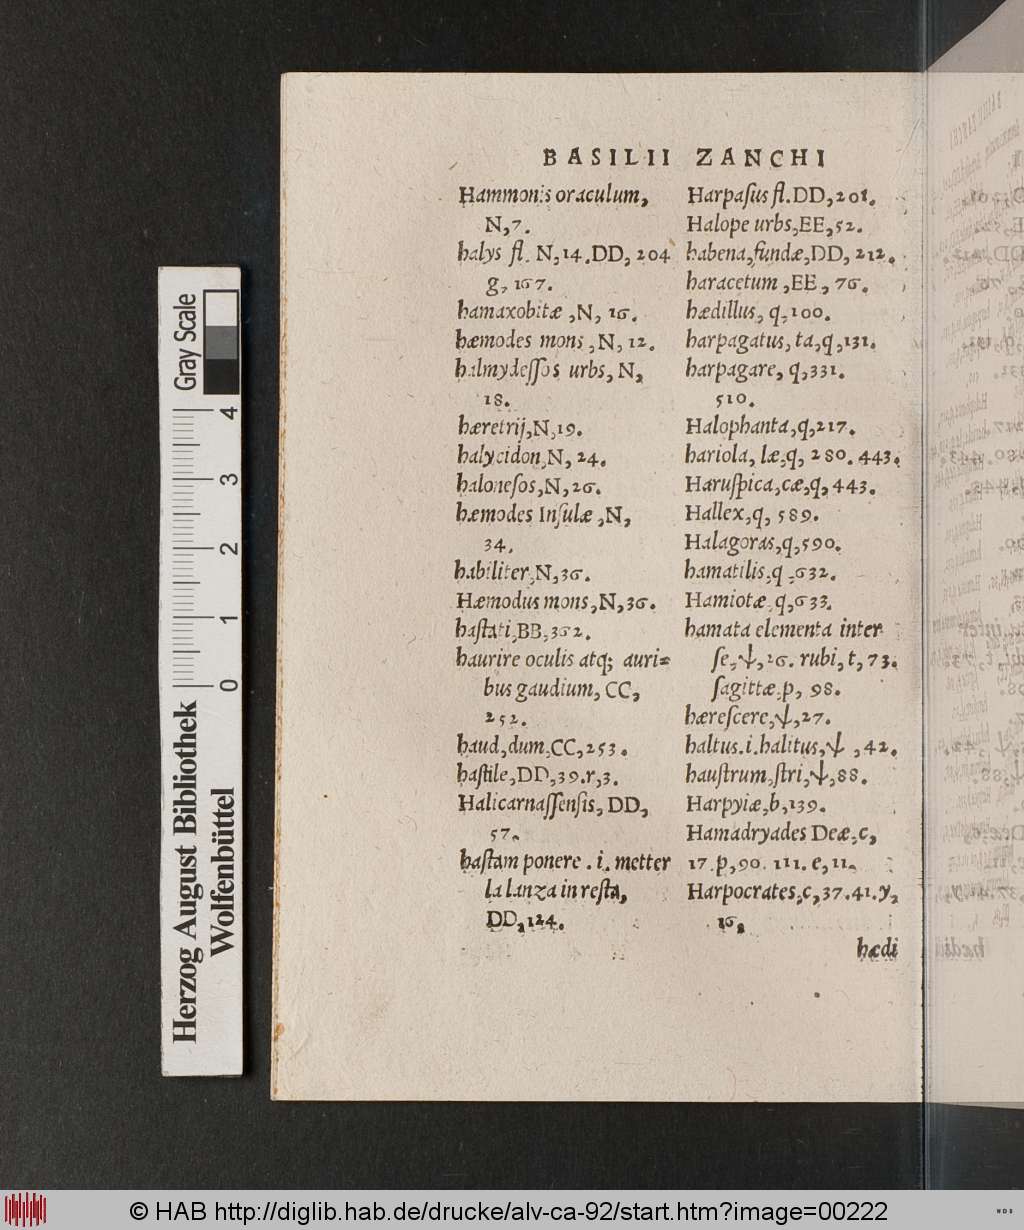 BASILII ZANCHI
Hammonis oraculum,
N,7.
halys fl. N,14.DD, 204
g, 167.
hamaxobitæ ,N, 16.
hæmodes mons ,N, 12.
halmydeſſos urbs, N,
18.
hæretrij,N,19.
halycidon,N, 24.
haloneſos,N,26.
hæmodes Inſulæ ,N,
34.
habiliter,N,36.
Hæmodus mons,N,36.
haſtati,BB,362.
haurire oculis atq; auri=
bus gaudium, CC,
252.
haud,dum,CC,253.
haſtile,DD,39.r,3.
Halicarnaſſenſis, DD,
57.
haſtam ponere .i. metter
la lanza in reſta,
DD,124.
Harpaſus fl.DD,201.
Halope urbs,EE,52.
habena,fundæ,DD, 212.
haracetum ,EE , 76.
hædillus, q,100.
harpagatus, ta,q,131.
harpagare, q,331.
510.
Halophanta,q,217.
hariola, læ,q, 280. 443.
Haruſpica,cæ,q,443.
Hallex,q, 589.
Halagoras,q,590.
hamatilis,q ,632.
Hamiotæ,q,633.
hamata elementa inter
ſe,ψ,26. rubi,t,73.
ſagittæ,p, 98.
hæreſcere,ψ,27.
haltus.i.halitus,ψ ,42.
hauſtrum,ſtri,ψ,88.
Harpyiæ,b,139.
Hamadryades Deæ,c,
17.p,90. 111.e,11.
Harpocrates,c,37.41.y,
16,
hædi
Gray Scale
4
3
2
1
0
Herzog August Bibliothek
Wolfenbüttel
© HAB http://diglib.hab.de/drucke/alv-ca-92/start.htm?image=00222